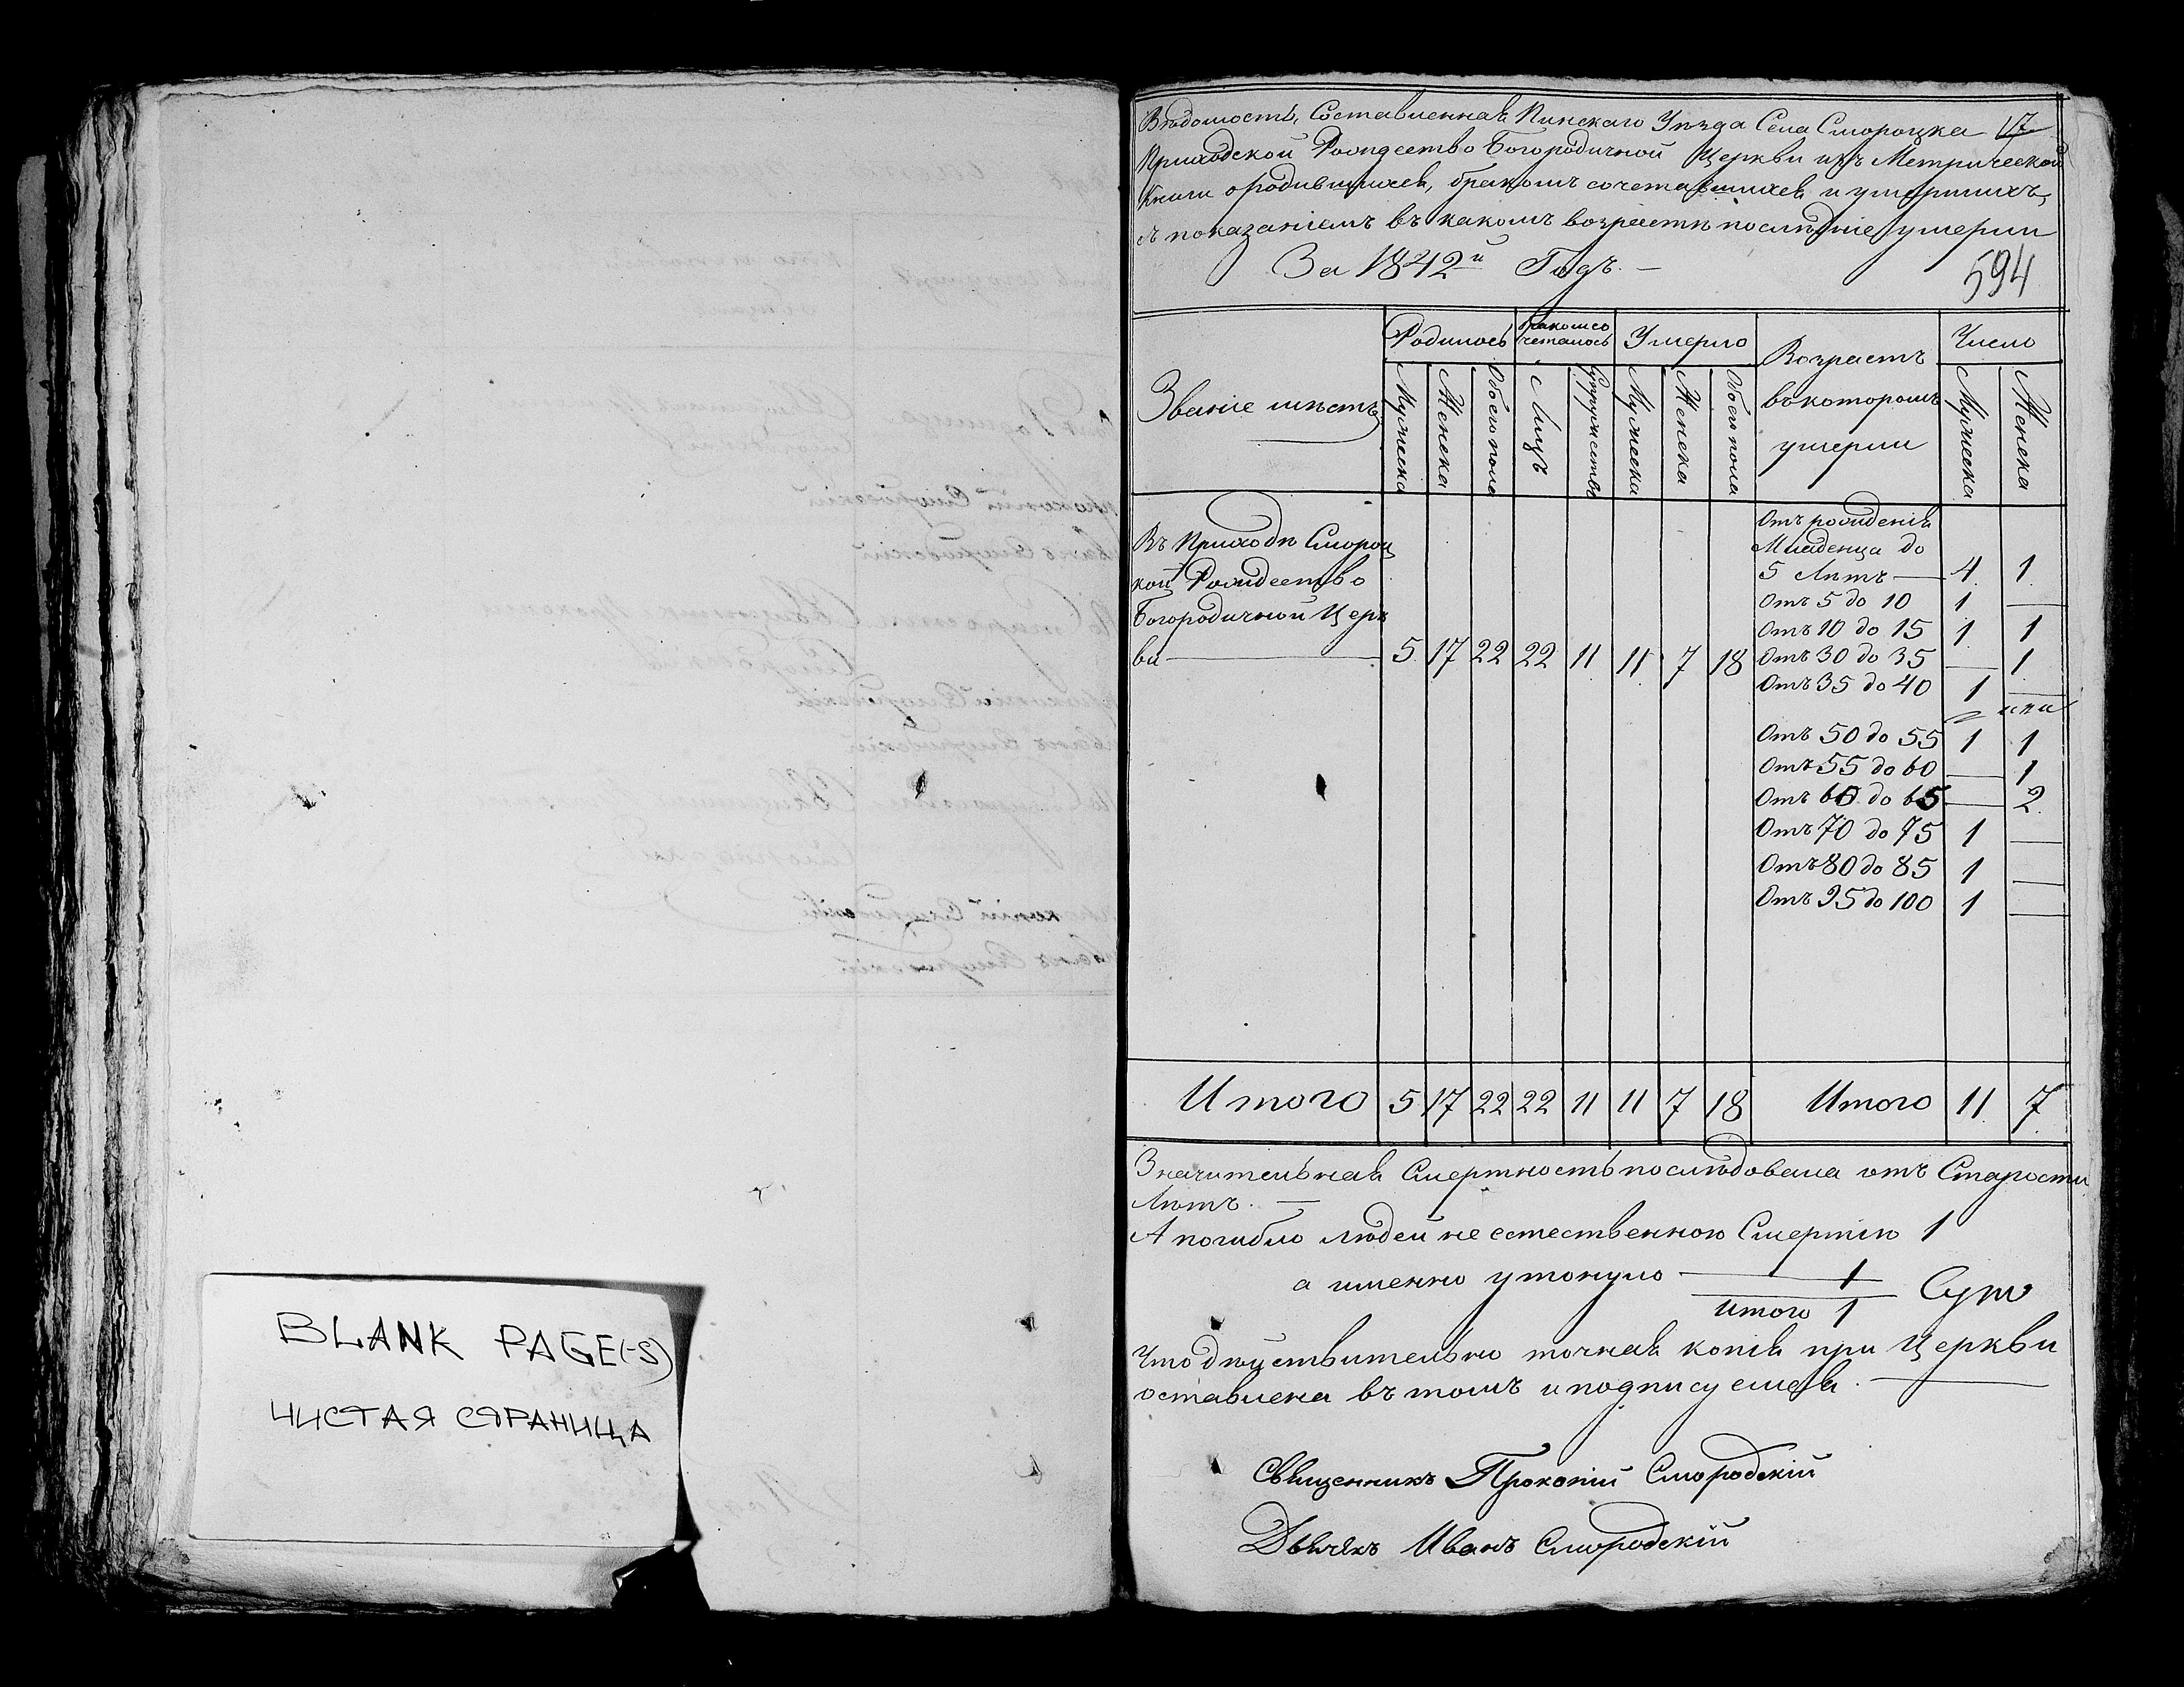 BLANK PAGE(-S)
ЧИСТАЯ СТРАНИЦА
Вѣдомость, Составленная Пинскаго Уѣзда Села Смороцка 17
Приходской Рождество Богородичной Церкви изъ Метрической
Книги о родившихся, бракомъ сочетавшихся и умершихъ,
съ показаніемъ въ какомъ возрастѣ послѣдніе умерли
За 1842й Годъ. —
594
Званіе мѣстъ
Родилось
Бракомсо
четалось
Умерло
Возрастъ
въкоторомъ
умерли
Число
Мужеска
Женска
Обоего пола
Лицъ
Супружествъ
Мужеска
Женска
Обоего пола
Мужеска
Женска
Въ Приходѣ Смороц
кой Рождество
Богородичной Церк
ви — 5 17 22 22 11 11 7 18
Отъ рожденія
Младенца до
5 Лѣтъ — 4 1
Отъ 5 до 10 1 —
Отъ 10 до 15 1 1
Отъ 30 до 35 — 1
Отъ 35 до 40 1 —
Отъ 50 до 55 1 1
Отъ 55 до 60 — 1
Отъ 60 до 65 — 2
Отъ 70 до 75 1 —
Отъ 80 до 85 1 —
Отъ 95 до 100 1 —
Итого 5 17 22 22 11 11 7 18 Итого 11 7
Значительная Смертность послѣдовала отъ Старости
Лѣтъ. —
А погибло людей не естественною Смертію 1
а именно утонуло — 1
Итого 1
Что дѣйствительно точная копія при Церкви
оставлена въ томъ и подписуемся. —
Священникъ Прокопій Смородскій
Дьячекъ Иванъ Смородскій